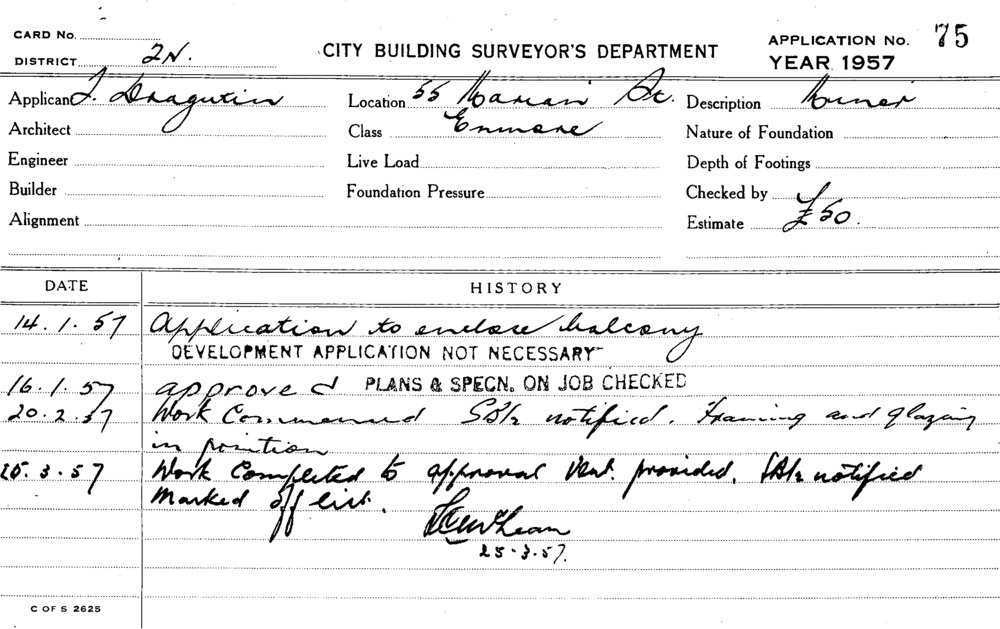 CARD No.
DISTRICT 2N.
CITY BUILDING SURVEYOR'S DEPARTMENT
APPLICATION No. 75
YEAR 1957
Applicant J. Dragutin
Location 55 Marian St.
Description Minor
Architect
Class Enmore
Nature of Foundation
Engineer
Live Load
Depth of Footings
Builder
Foundation Pressure
Checked by
Alignment
Estimate £50.
DATE HISTORY
14.1.57 Application to enclose balcony
DEVELOPMENT APPLICATION NOT NECESSARY
16.1.57 approved PLANS & SPECN. ON JOB CHECKED
20.2.57 Work Commenced notified. Framing and glazing
in position
25.3.57 Work Completed to approval Vent. provided, notified
Marked off list.
25.3.57.
C OF S 2625